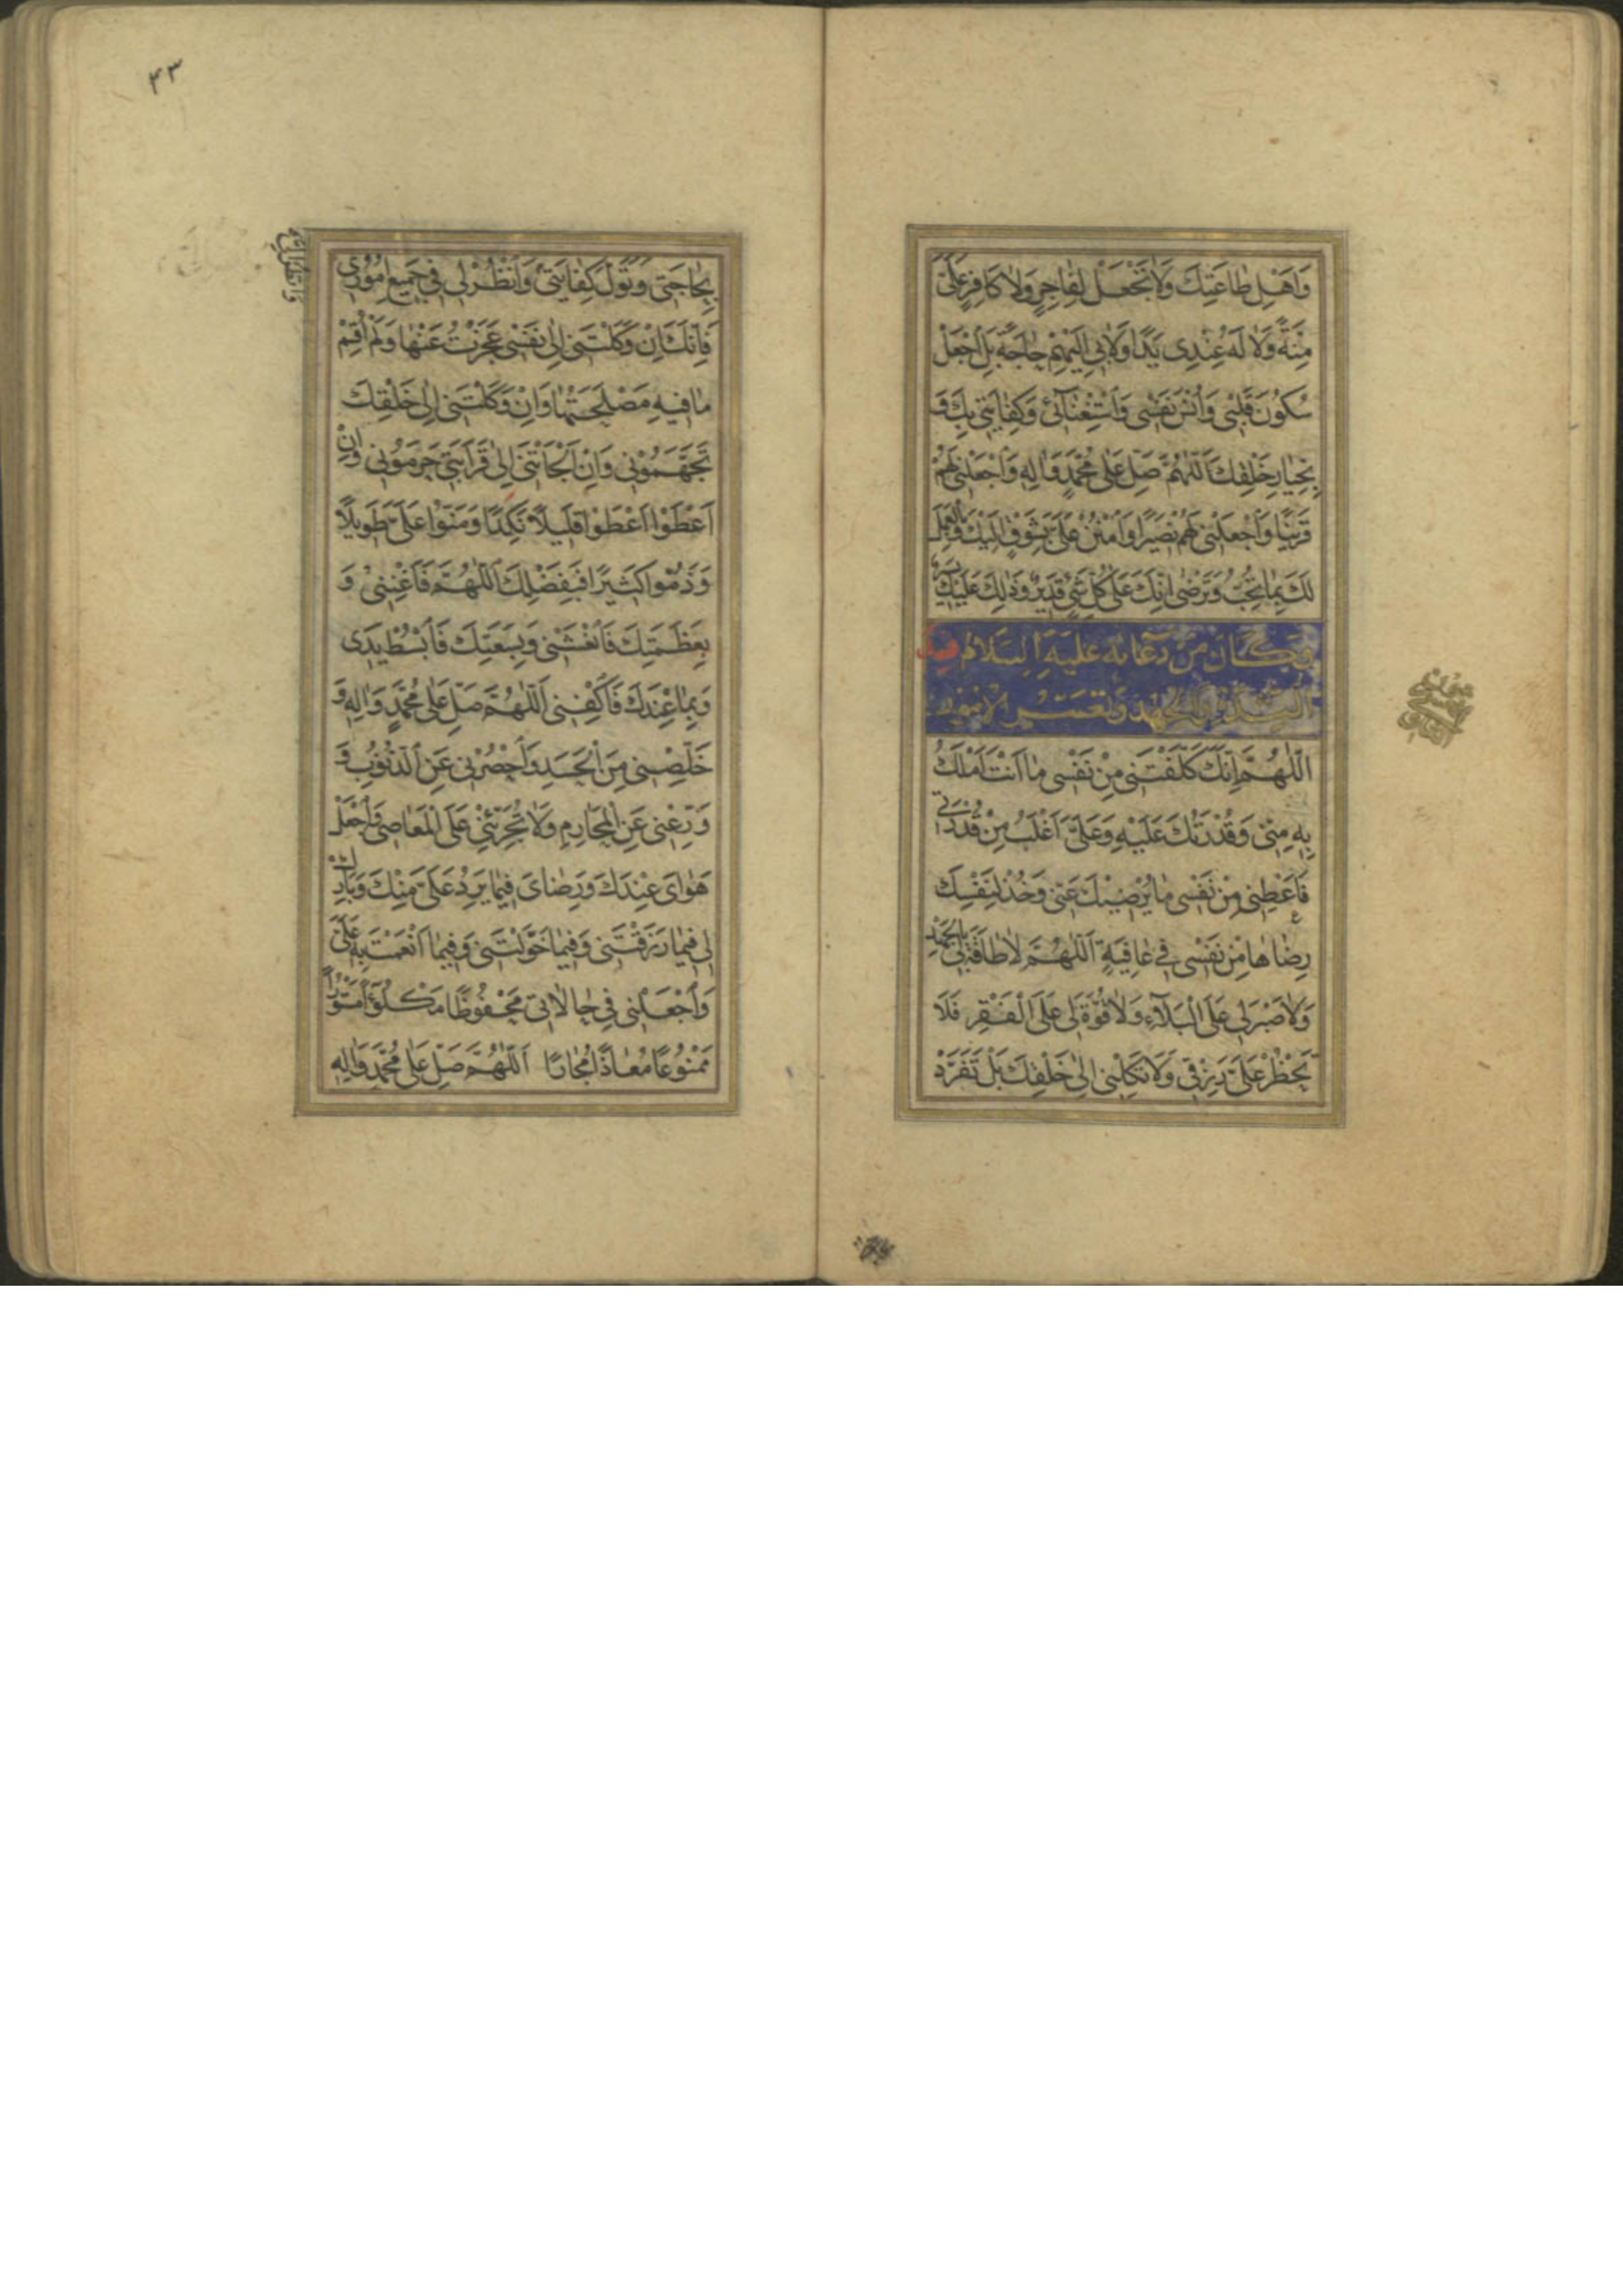 وَاَهْلِ طَاعَتِكَ وَلَا تَجْعَلْ لِفَاجِرٍ وَلَا كَافِرٍ عَلَيَّ
مِنَّةً وَلَا لَهُ عِنْدِي يَدًا وَلَا بِي اِلَيْهِمْ حَاجَةً بَلِ اجْعَلْ
سُكُونَ قَلْبِي وَاُنْسَ نَفْسِي وَاسْتِغْنَائِي وَكِفَايَتِي بِكَ وَ
بِخِيَارِ خَلْقِكَ اَللّٰهُمَّ صَلِّ عَلَى مُحَمَّدٍ وَآلِهِ وَاجْعَلْنِي لَهُمْ
قَرِينًا وَاجْعَلْنِي لَهُمْ نَصِيرًا وَامْنُنْ عَلَيَّ بِشَوْقٍ اِلَيْكَ وَبِالْعَمَلِ
لَكَ بِمَا تُحِبُّ وَتَرْضَى اِنَّكَ عَلَى كُلِّ شَيْءٍ قَدِيرٌ وَذَلِكَ عَلَيْكَ يَسِيرٌ
وَكَانَ مِنْ دُعَائِهِ عَلَيْهِ السَّلَامُ
الشِّدَّةِ وَالْجَهْدِ وَتَعَسُّرِ الْاُمُورِ
اَللّٰهُمَّ اِنَّكَ كَلَّفْتَنِي مِنْ نَفْسِي مَا اَنْتَ اَمْلَكُ
بِهِ مِنِّي وَقُدْرَتُكَ عَلَيْهِ وَعَلَيَّ اَغْلَبُ مِنْ قُدْرَتِي
فَاَعْطِنِي مِنْ نَفْسِي مَا يُرْضِيكَ عَنِّي وَخُذْ لِنَفْسِكَ
رِضَاهَا مِنْ نَفْسِي فِي عَافِيَةٍ اَللّٰهُمَّ لَا طَاقَةَ لِي بِالْجَهْدِ
وَلَا صَبْرَ لِي عَلَى الْبَلَاءِ وَلَا قُوَّةَ لِي عَلَى الْفَقْرِ فَلَا
تَحْظُرْ عَلَيَّ رِزْقِي وَلَا تَكِلْنِي اِلَى خَلْقِكَ بَلْ تَفَرَّدْ
۴۳
بِحَاجَتِي وَتَوَلَّ كِفَايَتِي وَانْظُرْ لِي فِي جَمِيعِ اُمُورِي
فَاِنَّكَ اِنْ وَكَلْتَنِي اِلَى نَفْسِي عَجَزْتُ عَنْهَا وَلَمْ اُقِمْ
مَا فِيهِ مَصْلَحَتُهَا وَاِنْ وَكَلْتَنِي اِلَى خَلْقِكَ
تَجَهَّمُونِي وَاِنْ اَلْجَأْتَنِي اِلَى قَرَابَتِي حَرَمُونِي وَاِنْ
اَعْطَوْا اَعْطَوْا قَلِيلًا نَكِدًا وَمَنُّوا عَلَيَّ طَوِيلًا
وَذَمُّوا كَثِيرًا فَبِفَضْلِكَ اَللّٰهُمَّ فَاَغْنِنِي وَ
بِعَظَمَتِكَ فَانْعَشْنِي وَبِسَعَتِكَ فَابْسُطْ يَدِي
وَبِمَا عِنْدَكَ فَاكْفِنِي اَللّٰهُمَّ صَلِّ عَلَى مُحَمَّدٍ وَآلِهِ وَ
خَلِّصْنِي مِنَ الْحَسَدِ وَاحْصُرْنِي عَنِ الذُّنُوبِ وَ
وَرِّعْنِي عَنِ الْمَحَارِمِ وَلَا تُجَرِّئْنِي عَلَى الْمَعَاصِي وَاجْعَلْ
هَوَايَ عِنْدَكَ وَرِضَايَ فِيمَا يَرِدُ عَلَيَّ مِنْكَ وَبَارِكْ
لِي فِيمَا رَزَقْتَنِي وَفِيمَا خَوَّلْتَنِي وَفِيمَا اَنْعَمْتَ بِهِ عَلَيَّ
وَاجْعَلْنِي فِي حَالَاتِي مَحْفُوظًا مَكْلُوءًا مَسْتُورًا
مَمْنُوعًا مُعَاذًا مُجَارًا اَللّٰهُمَّ صَلِّ عَلَى مُحَمَّدٍ وَآلِهِ